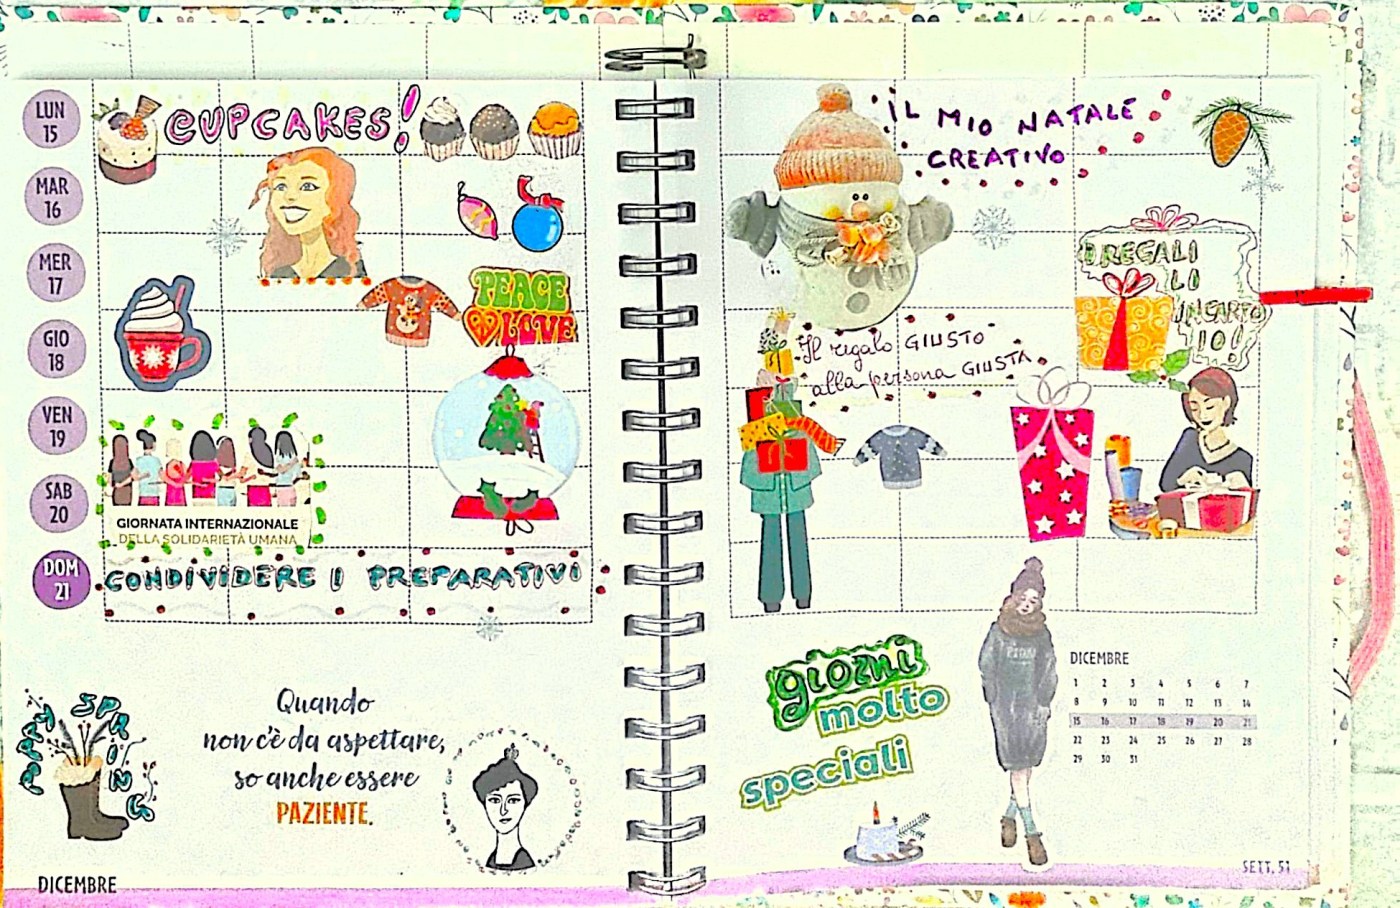 LUN
15
CUPCAKES!
MAR
16
MER
17
PEACE
LOVE
GIO
18
VEN
19
SAB
20
GIORNATA INTERNAZIONALE
DELLA SOLIDARIETÀ UMANA
DOM
21
CONDIVIDERE I PREPARATIVI
SPRING
Quando
non c'è da aspettare,
so anche essere
PAZIENTE.
DICEMBRE
IL MIO NATALE
CREATIVO
REGALI
LI
INCARTO
IO!
Il regalo GIUSTO
alla persona GIUSTA
giorni
molto
speciali
DICEMBRE
1 2 3 4 5 6 7
8 9 10 11 12 13 14
15 16 17 18 19 20 21
22 23 24 25 26 27 28
29 30 31
SETT. 51